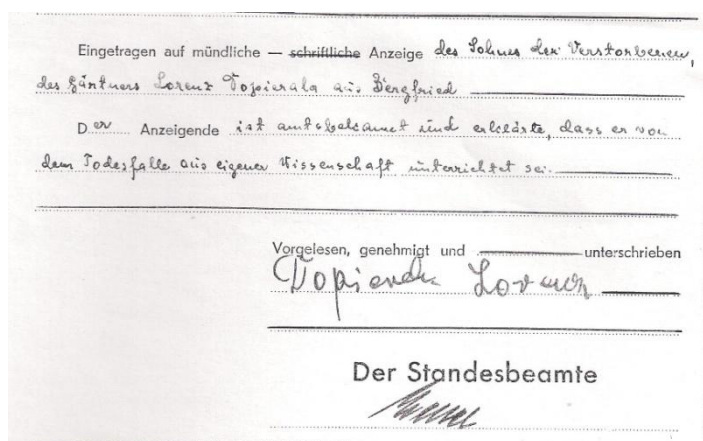 Eingetragen auf mündliche — schriftliche Anzeige des Sohnes der Verstorbenen,
des Gärtners Lorenz Topierala aus Bergfried
Der Anzeigende ist amtsbekannt und erklärte, dass er von
dem Todesfalle aus eigener Wissenschaft unterrichtet sei.
Vorgelesen, genehmigt und unterschrieben
Topierala Lorenz
Der Standesbeamte